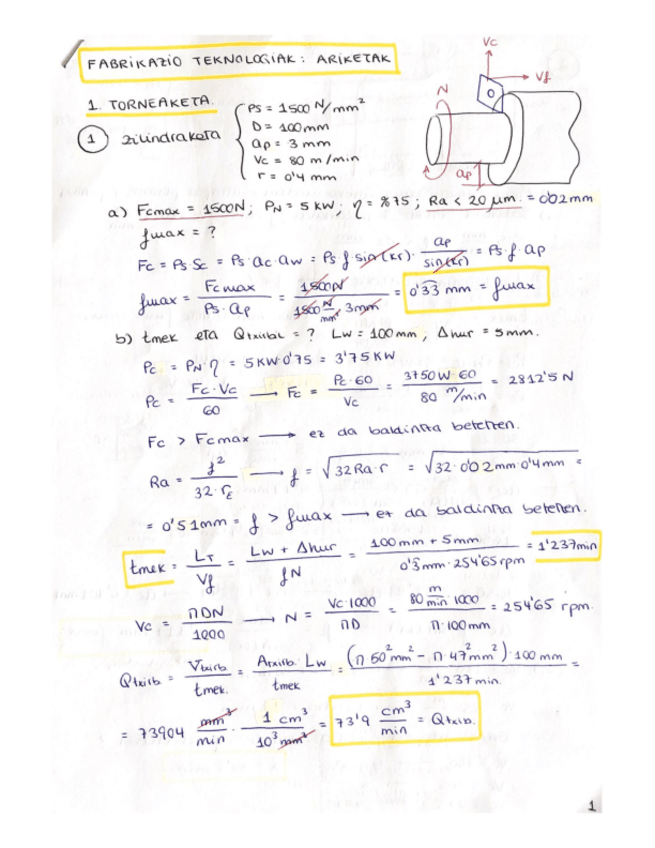 FABRIKAZIO TEKNOLOGIAK: ARIKETAK
1. TORNEAKETA.
1 zilindraketa
Ps = 1500 N/mm²
D = 100mm
ap = 3 mm
Vc = 80 m/min
r = 0'4 mm
Vc
Vf
N
ap
a) Fcmax = 1500N; PN = 5 KW; η = %75; Ra < 20 μm. = 0'02mm
fmax = ?
Fc = Ps·Sc = Ps·ac·aw = Ps·f·sin(kr)· ap/sin(kr) = Ps·f·ap
fmax = Fcmax/(Ps·ap) = 1500N/(1500 N/mm² · 3mm) = 0'33 mm = fmax
b) tmek eta Qtxirbil = ? Lw = 100mm, Δhur = 5mm.
Pc = PN·η = 5KW·0'75 = 3'75 KW
Pc = Fc·Vc/60 → Fc = Pc·60/Vc = 3750W·60/(80 m/min) = 2812'5 N
Fc > Fcmax → ez da baldintza betetzen.
Ra = f²/(32·rε) → f = √(32Ra·r) = √(32·0'02mm·0'4mm) =
= 0'51mm = f > fmax → ez da baldintza betetzen.
tmek = LT/Vf = (Lw + Δhur)/(fN) = (100mm + 5mm)/(0'3mm·254'65rpm) = 1'237min
Vc = ΠDN/1000 → N = Vc·1000/(ΠD) = (80 m/min · 1000)/(Π·100mm) = 254'65 rpm.
Qtxirb = Vtxirb/tmek. = Atxirb·Lw/tmek = (Π·50²mm² - Π·47²mm²)·100mm/1'237min. =
= 73904 mm³/min · 1 cm³/10³mm³ = 73'9 cm³/min = Qtxirb.
1